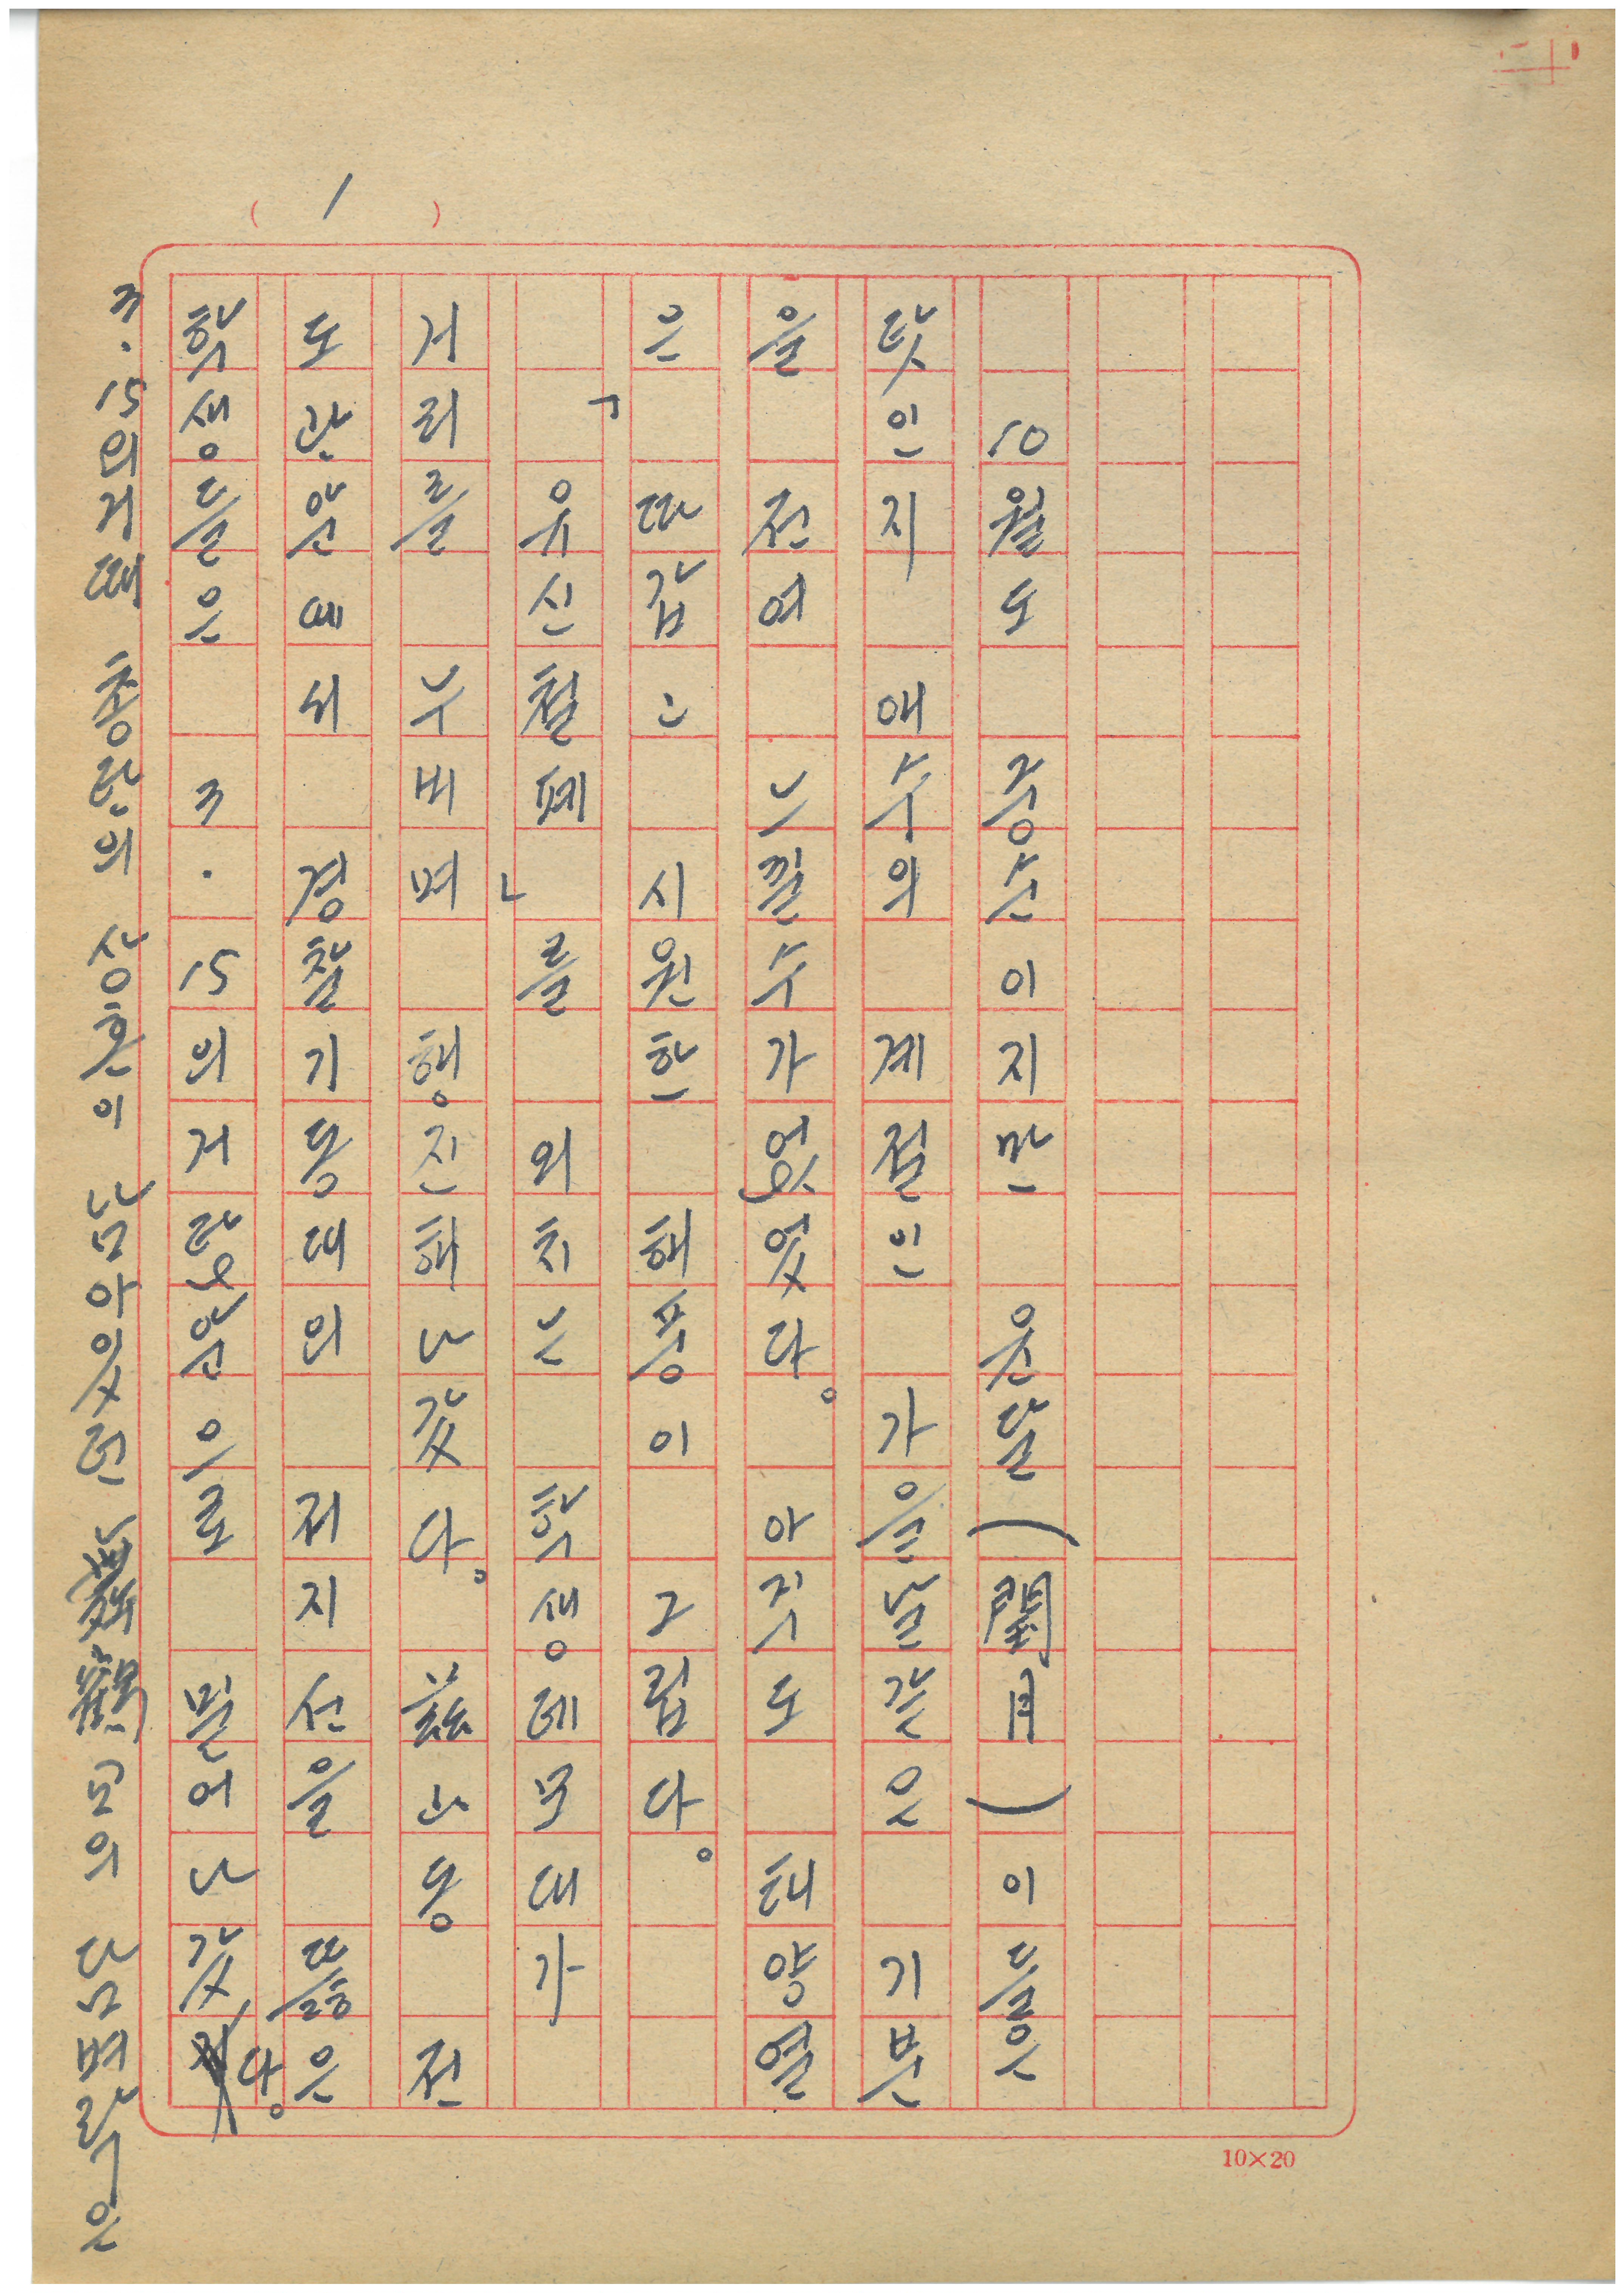 ( 1 )
10월도 중순이지만 윤달(閏月)이들은
탓인지 애수의 계절인 가을날같은 기분
을 전여 느낄수가 없었다. 아직도 태양열
은 따갑고 시원한 해풍이 그립다.
「유신철폐」를 외치는 학생데모대가
거리를 누비며 행진해나갔다. 玆山동 전
도관앞에서 경찰기동대의 저지선을 뚫은
학생들은 3.15의거탑앞으로 밀어나갔다.
3.15의거때 총탄의 상흔이 남아있던 鶴교의 담벼락은
10×20